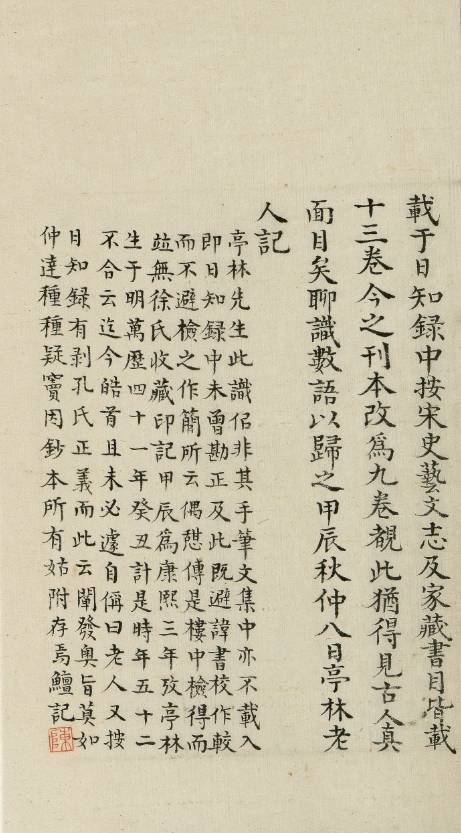 載于日知録中按宋史藝文志及家藏書目皆載
十三卷今之刊本改爲九卷覩此猶得見古人真
面目矣聊識數語以歸之甲辰秋仲八日亭林老
人記
亭林先生此識侣非其手筆文集中亦不載入
即日知録中未曾勘正及此既避諱書校作較
而不避檢之作簡所云偶憇傳是樓中檢得而
竝無徐氏收藏印記甲辰爲康熙三年攷亭林
生于明萬歷四十一年癸丑計是時年五十二
不合云迄今皓首且未必遽自稱曰老人又按
日知録有剥孔氏正義而此云闡發奥旨莫如
仲達種種疑竇因鈔本所有姑附存焉鱣記